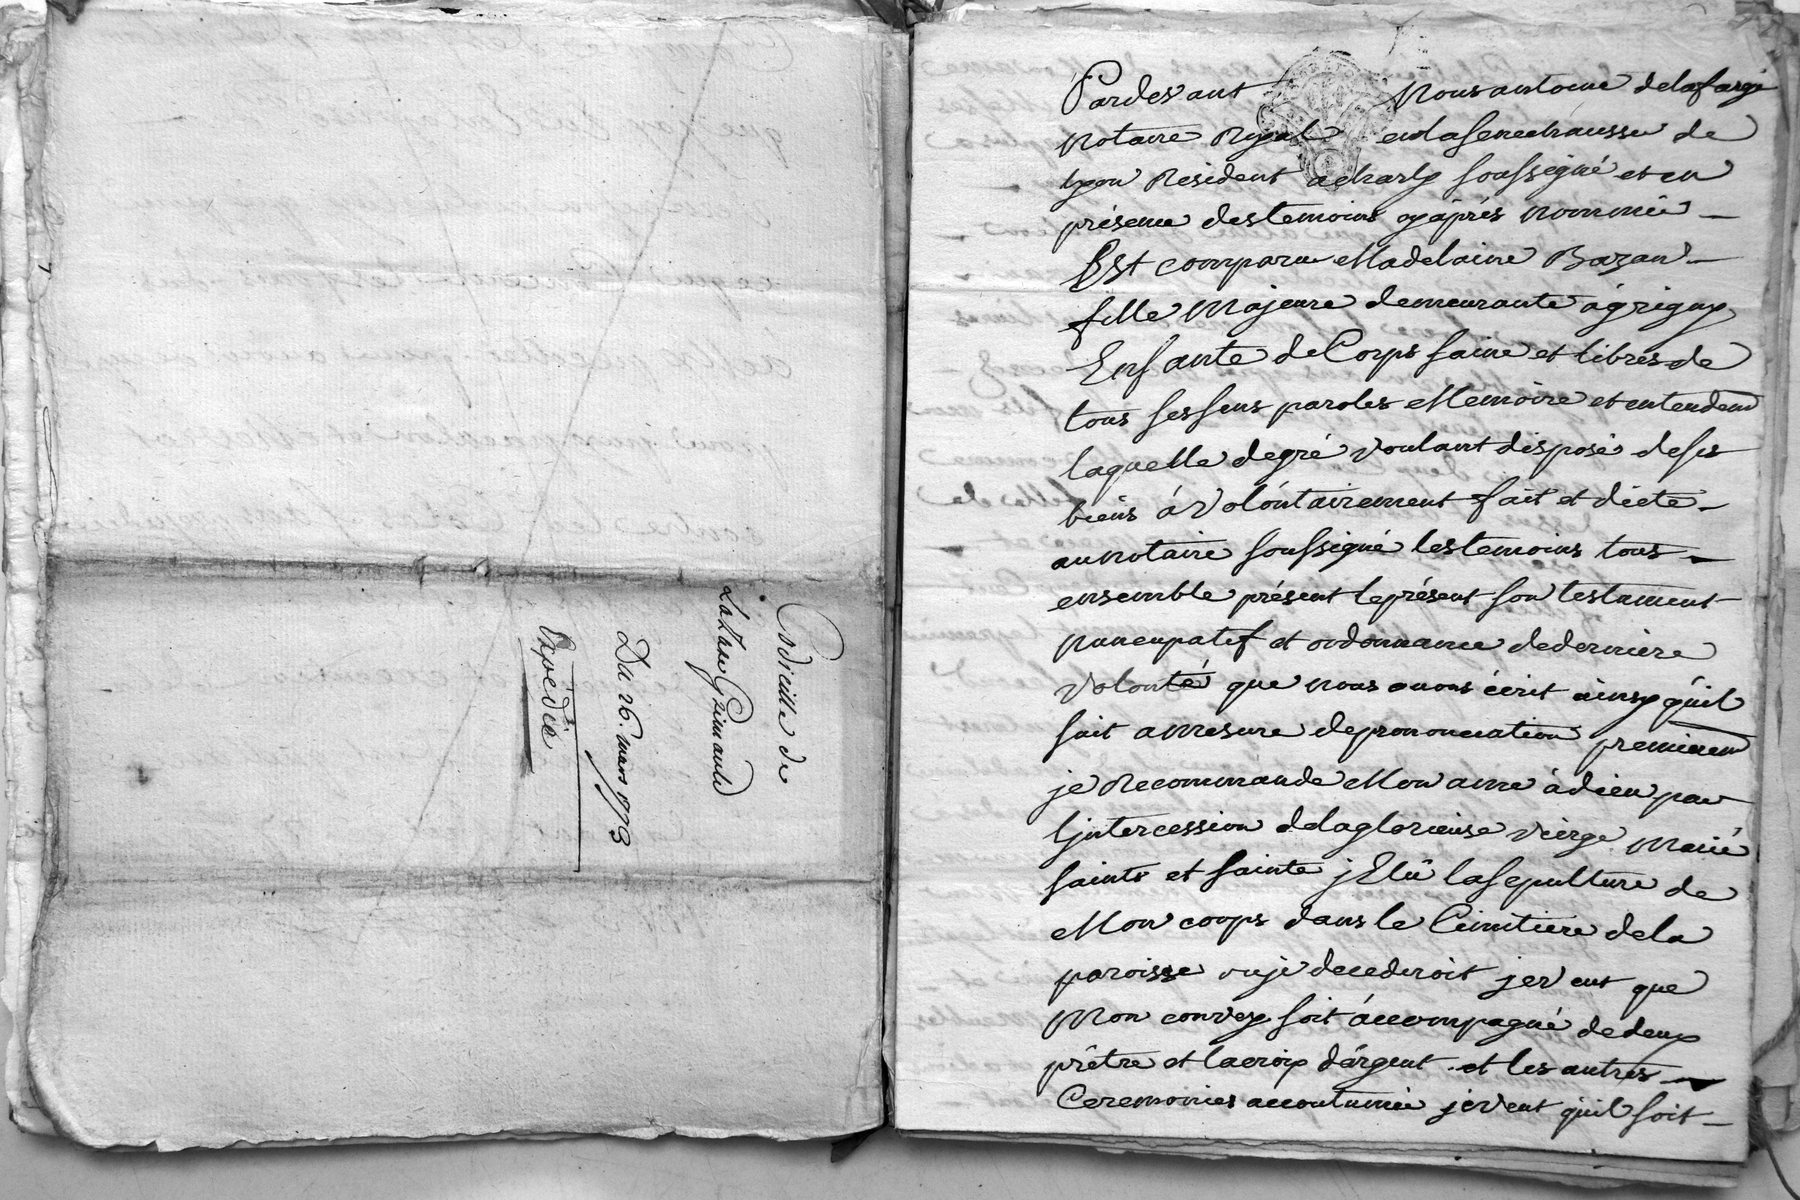 Codicille de
Lazare Grimaud
Du 26. mars 1773
Expediée
Pardevant Nous antoine delafarge
Notaire Royal en la senechaussee de
Lyon Resident a charly soussigné et en
présence des temoins cy après nommée
Est comparu Madelaine Bazan
fille Majeure demeurante à grigny
Enfante de Corps saine et libres de
tous ses sens paroles Memoire et entendem
laquelle de gré voulant disposé de ses
biens à volontairement fait et dicté
au notaire soussigné les temoins tous
ensemble présent le présent son testament
nuncupatif et ordonnance de derniere
volonté que nous avons écrit ainsy qu'il
suit a mesure de prononciation premierem
je Recommande Mon ame à dieu par
Ljntercession de la glorieuse vierge Marie
saints et sainte j Elû la sepulture de
Mon corps dans le Cimitiere de la
paroisse ou je decederoit je veut que
Mon convoy soit accompagné de deux
prêtre et la croix d'argent et les autres
Ceremonies accoutumée je veut qu'il soit